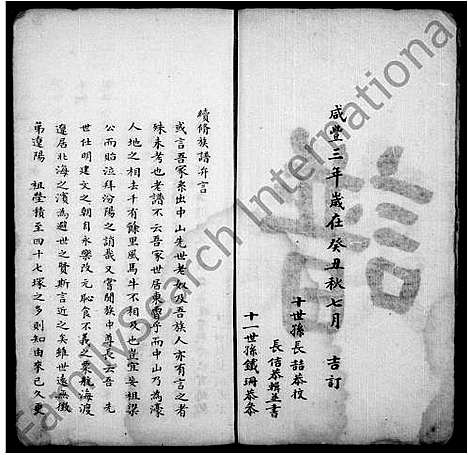 咸豐三年歲在癸丑秋七月 吉訂
十世孫長喆恭校
長佶恭輯並書
十一世孫鐵珊恭參
續修族譜弁言
或言吾家系出中山先世老奴及吾族人亦有言之者
殊未考也老譜不云吾家世居東魯乎而中山乃為濠
人地之相去千有餘里風馬牛不相及也豈宜妄祖梁
公而貽泣拜汾陽之誚哉又嘗聞族中尊長云吾 先
世仕明建文之朝自永樂改元恥食不義之粟航海渡
遼居北海之濱為避世之賢斯言近之矣雖世遠無徵
第遼陽 祖塋積至四十七塚之多則知由來已久要
FamilySearch International